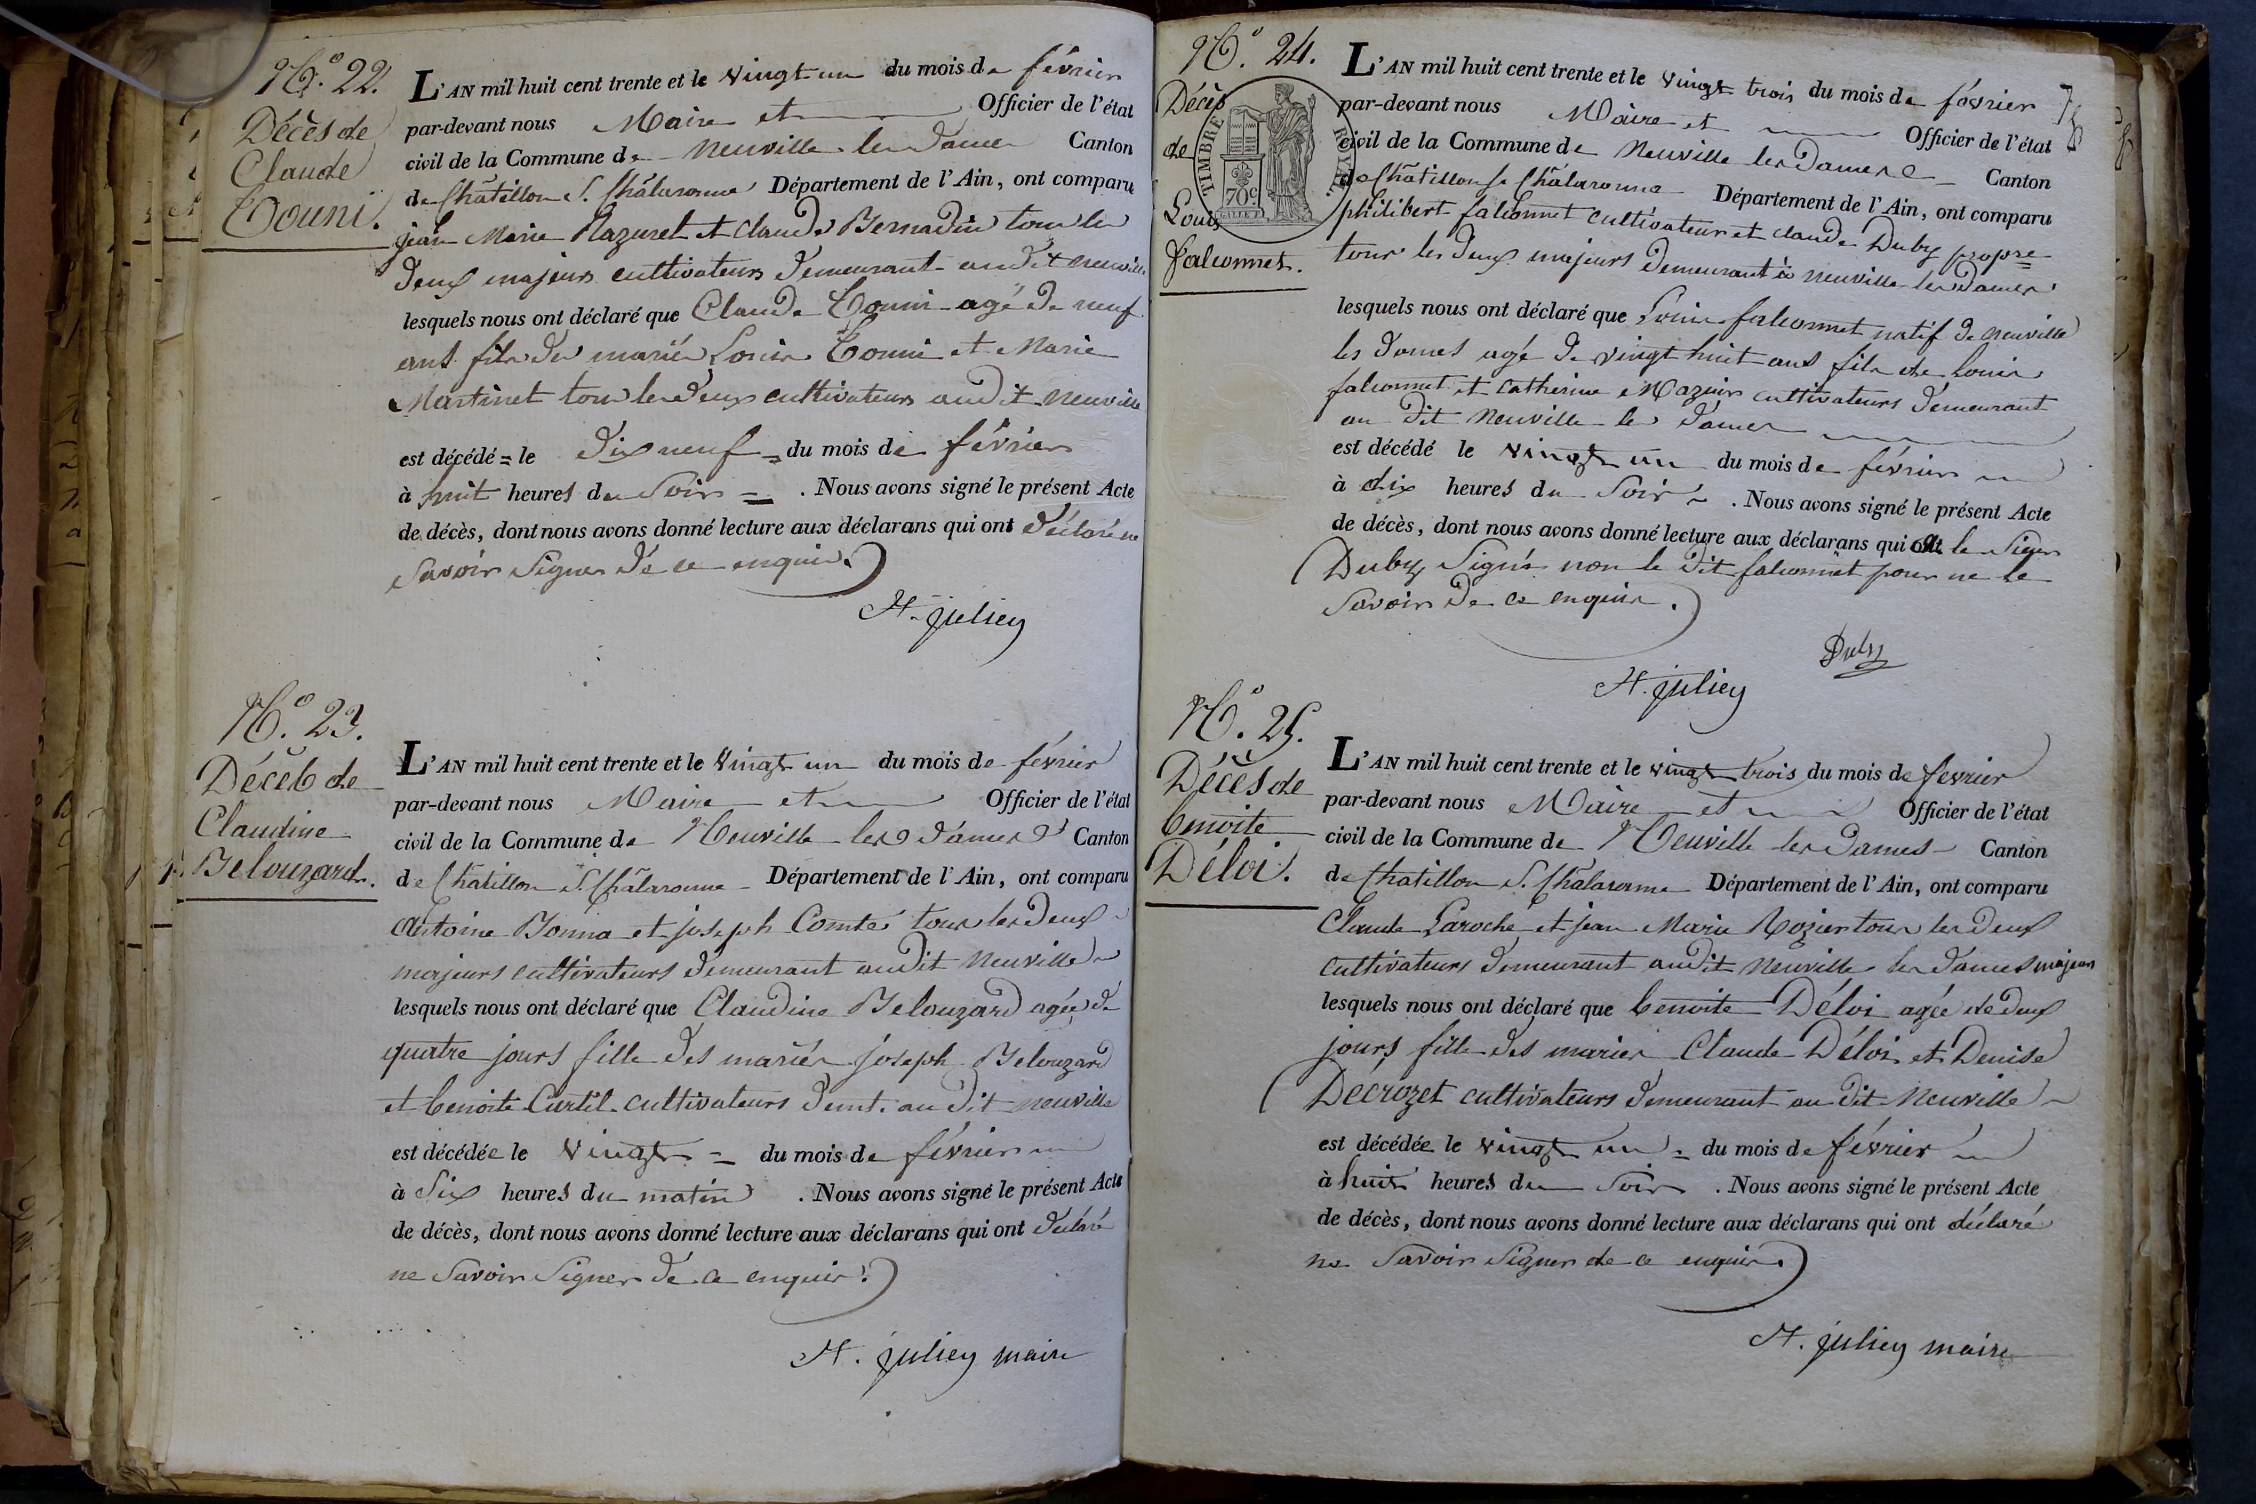 N.o 22.
Décès de
Claude
Touni.
L'AN mil huit cent trente et le vingt un du mois de février
par-devant nous Maire et Officier de l'état
civil de la Commune de Neuville les Dames Canton
de Châtillon S. Châlaronne Département de l'Ain, ont comparu
jean Marie Nazuret et claude Bernadin tous les
deux majeurs cultivateurs demeurant audit neuville
lesquels nous ont déclaré que Claude Touni agé de neuf
ans fils des mariés Louis Touni et Marie
Martinet tous les deux cultivateurs audit Neuville
est décédé = le dix neuf = du mois de février
à huit heures du Soir = . Nous avons signé le présent Acte
de décès, dont nous avons donné lecture aux déclarans qui ont déclaré ne
Savoir Signer de ce enquis.
H. juliey
N.o 23.
Décès de
Claudine
Belouzard.
L'AN mil huit cent trente et le vingt un du mois de février
par-devant nous Maire et Officier de l'état
civil de la Commune de Neuville les Dames Canton
de Châtillon S. Châlaronne Département de l'Ain, ont comparu
Antoine Bonna et joseph Comte tous les deux
majeurs cultivateurs demeurant audit Neuville
lesquels nous ont déclaré que Claudine Belouzard agée de
quatre jours fille des mariés joseph Belouzard
et benoite Curtil cultivateurs demt. au dit neuville
est décédée le vingt = du mois de février
à Six heures du matin . Nous avons signé le présent Acte
de décès, dont nous avons donné lecture aux déclarans qui ont déclaré
ne Savoir Signer de ce enquis.
H. juliey maire
N.o 24.
Décès
de
Louis
falconnet.
TIMBRE ROYAL
70c
L'AN mil huit cent trente et le vingt trois du mois de février
par-devant nous Maire et Officier de l'état
civil de la Commune de Neuville les Dames Canton
de Châtillon S. Châlaronne Département de l'Ain, ont comparu
philibert falconnet cultivateur et claude Duby propre
tous les deux majeurs demeurant à neuville les Dames
lesquels nous ont déclaré que Louis falconnet natif de neuville
les Dames agé de vingt huit ans fils de louis
falconnet et catherine Mazuir cultivateurs demeurant
au dit Neuville les Dames
est décédé le vingt un du mois de février
à dix heures du Soir . Nous avons signé le présent Acte
de décès, dont nous avons donné lecture aux déclarans qui le Sieur
Duby Signé non le dit falconnet pour ne le
Savoir de ce enquis.
Duby
H. juliey
N.o 25.
Décès de
benoite
Déloi.
L'AN mil huit cent trente et le vingt trois du mois de fevrier
par-devant nous Maire et Officier de l'état
civil de la Commune de Neuville les Dames Canton
de Chatillon S. Châlaronne Département de l'Ain, ont comparu
Claude Laroche et jean Marie Rozier tous les deux
cultivateurs demeurant audit Neuville les Dames majeurs
lesquels nous ont déclaré que benoite Déloi agée de deux
jours fille des mariés Claude Déloi et Denise
Décrozet cultivateurs demeurant au dit Neuville
est décédée le vingt un = du mois de février
à huit heures du Soir . Nous avons signé le présent Acte
de décès, dont nous avons donné lecture aux déclarans qui ont déclaré
ne Savoir Signer de ce enquis.
H. juliey maire